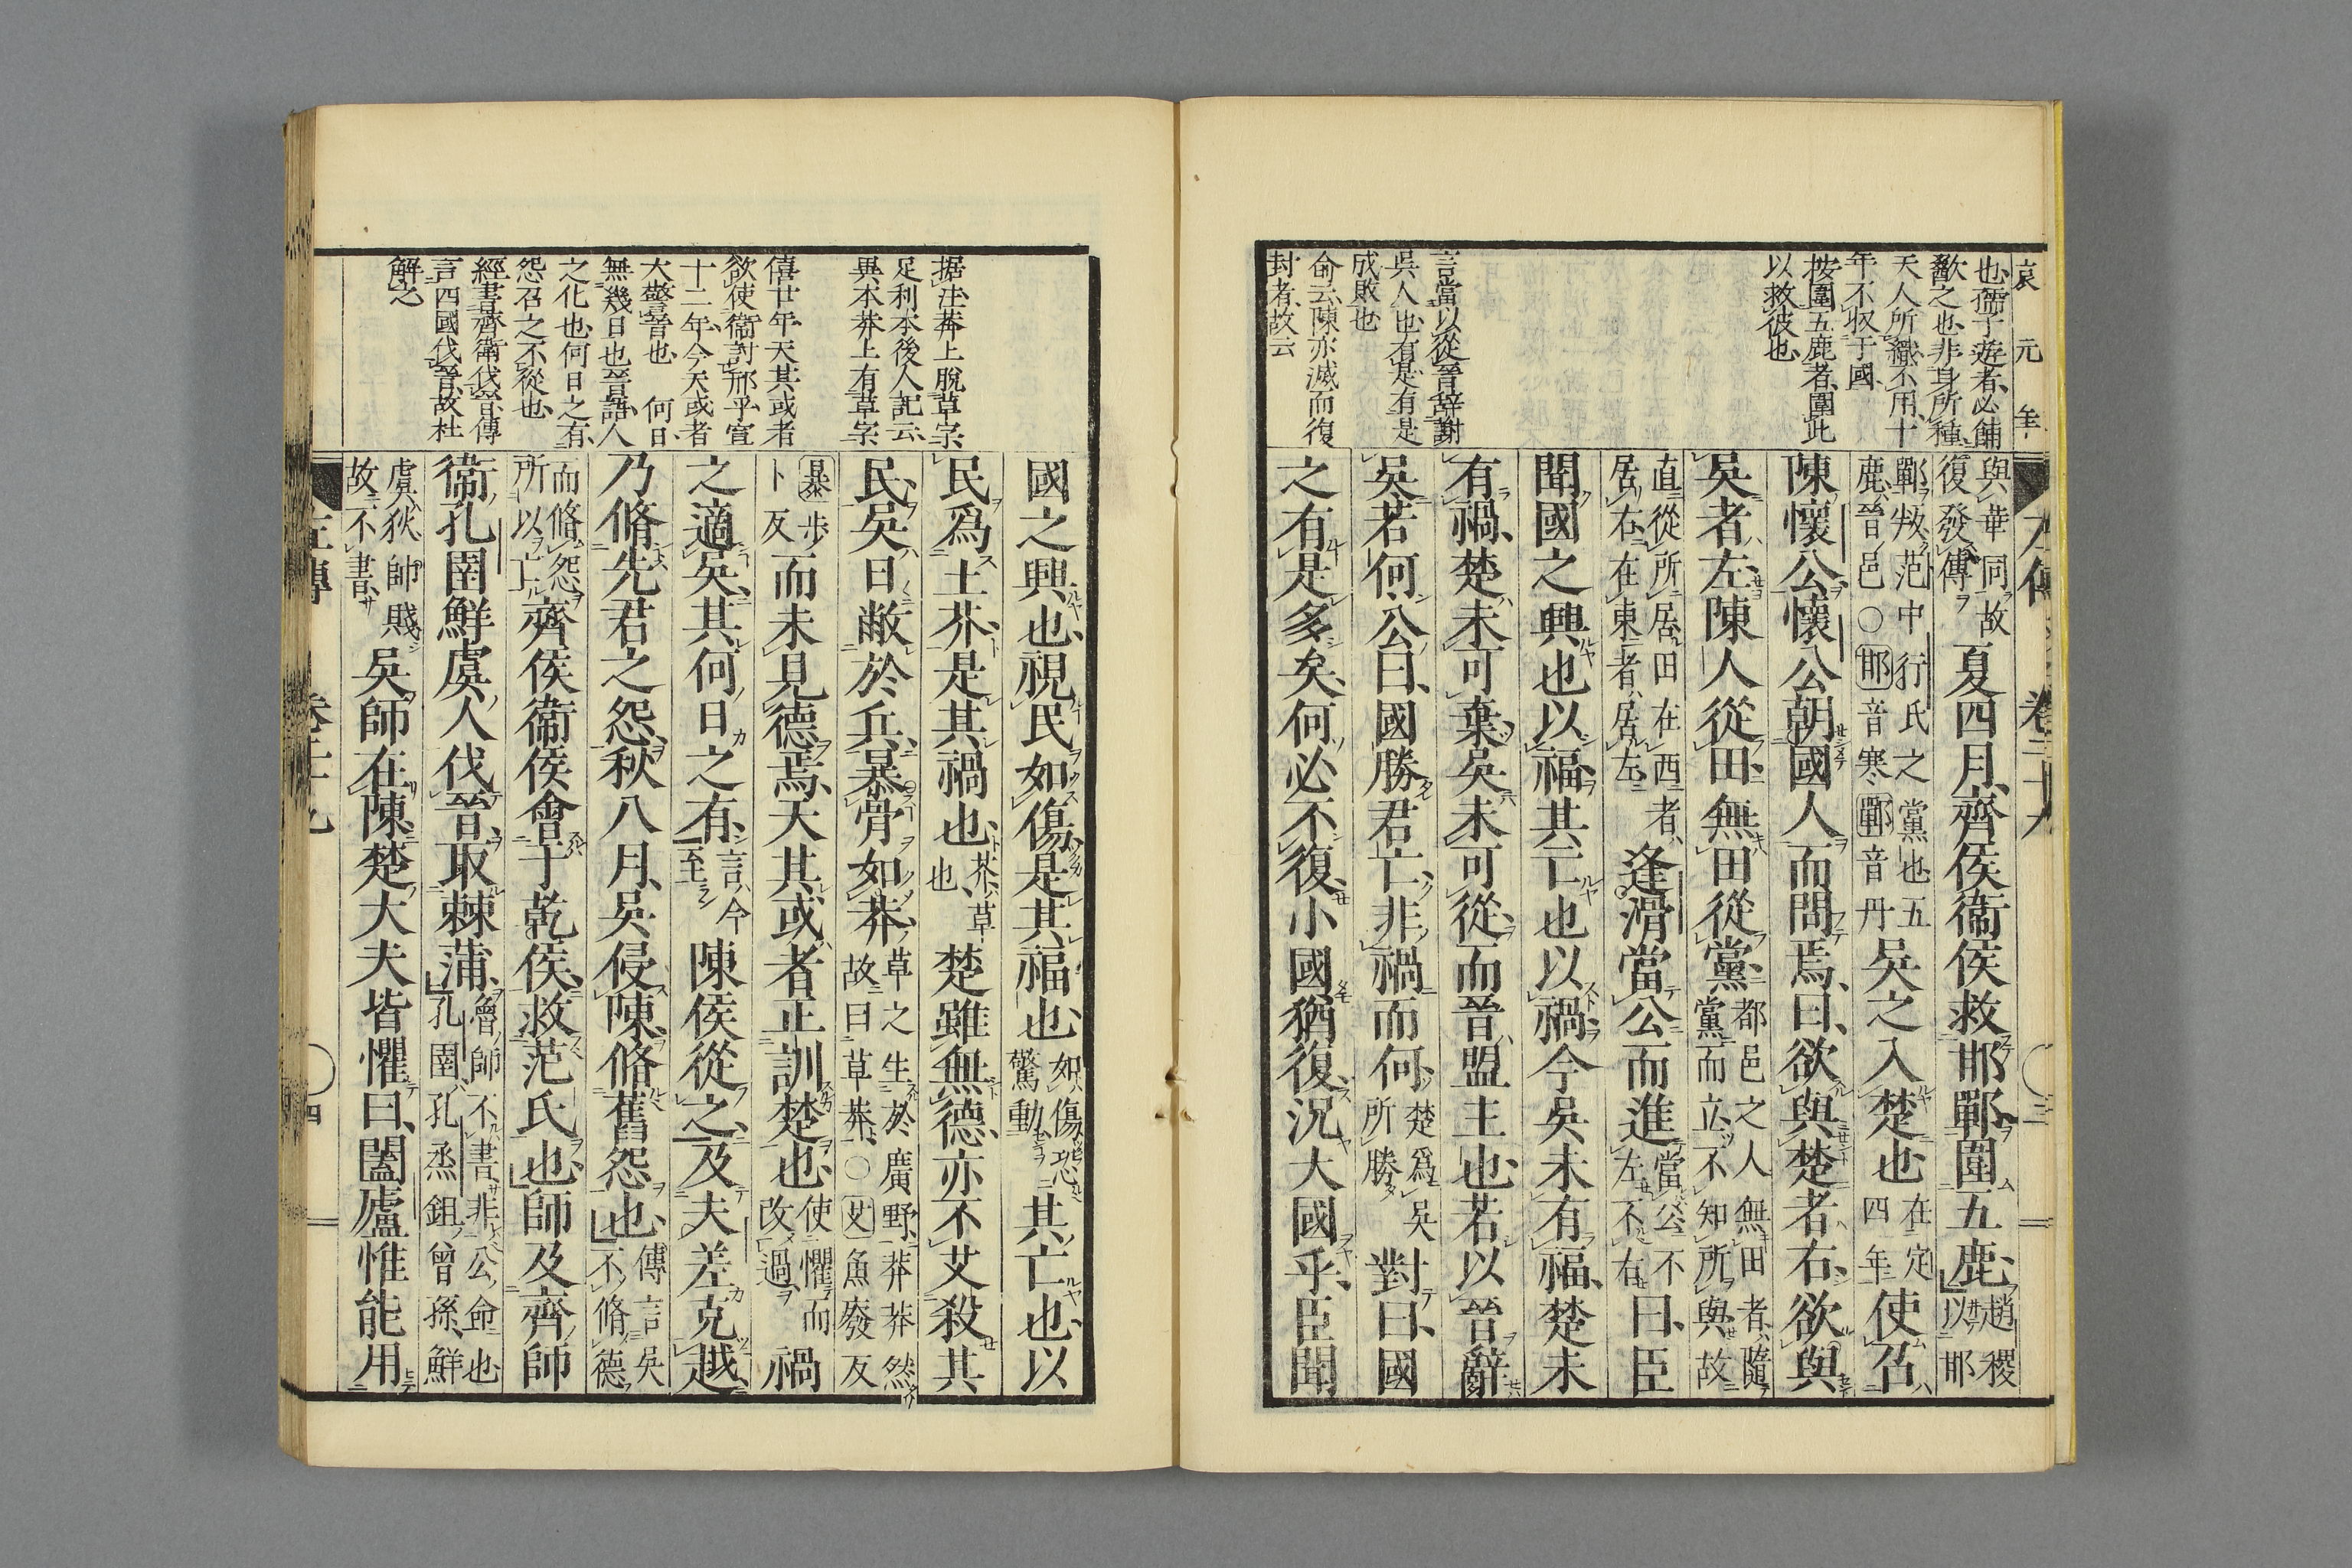 哀元年
也孺子遊者必餔
歠之也非身所種
天人所殲不用十
年不収于國
按圍五鹿者圍此
以救彼也
言當以從晉辭謝
吳人也有是有是
成敗也
俞云陳亦滅而復
封者故云
與華同故
復發傳
夏四月齊侯衞侯救邯鄲圍五鹿
趙稷
以邯
鄲叛范中行氏之黨也五
鹿晉邑○邯音寒鄲音丹
吳之入楚也
在定
四年
使召
陳懷公懷公朝國人而問焉曰欲與楚者右欲與
吳者左陳人從田無田從黨
都邑之人無田者隨
黨而立不知所與故
直從所居田在西者
居右在東者居左
逢滑當公而進
當公不
左不右
曰臣
聞國之興也以福其亡也以禍今吳未有福楚未
有禍楚未可棄吳未可從而晉盟主也若以晉辭
吳若何公曰國勝君亡非禍而何
楚爲吳
所勝
對曰國
之有是多矣何必不復小國猶復況大國乎臣聞
据注莽上脫草字
足利本後人記云
異本莽上有草字
僖廿年天其或者
欲使衞討邢乎宣
十二年今天或者
大警晉也　何日
無幾日也晉語人
之化也何日之有
怨召之不從也
經書齊衞伐晉傳
言四國伐晉故杜
解之
國之興也視民如傷是其福也
如傷恐
驚動
其亡也以
民爲土芥是其禍也
芥草
也
楚雖無德亦不艾殺其
民吳日敝於兵暴骨如莽
草之生於廣野莽莽然
故曰草莽○艾魚廢反
暴步
卜反
而未見德焉天其或者正訓楚也
使懼而
改過
禍
之適吳其何日之有
言今
至
陳侯從之及夫差克越
乃脩先君之怨秋八月吳侵陳脩舊怨也
傳言吳
不脩德
而脩怨
所以亡
齊侯衞侯會于乾侯救范氏也師及齊師
衞孔圉鮮虞人伐晉取棘蒲
魯師不書非公命也
孔圉孔烝鉏曾孫鮮
虞狄帥賤
故不書
吳師在陳楚大夫皆懼曰闔廬惟能用